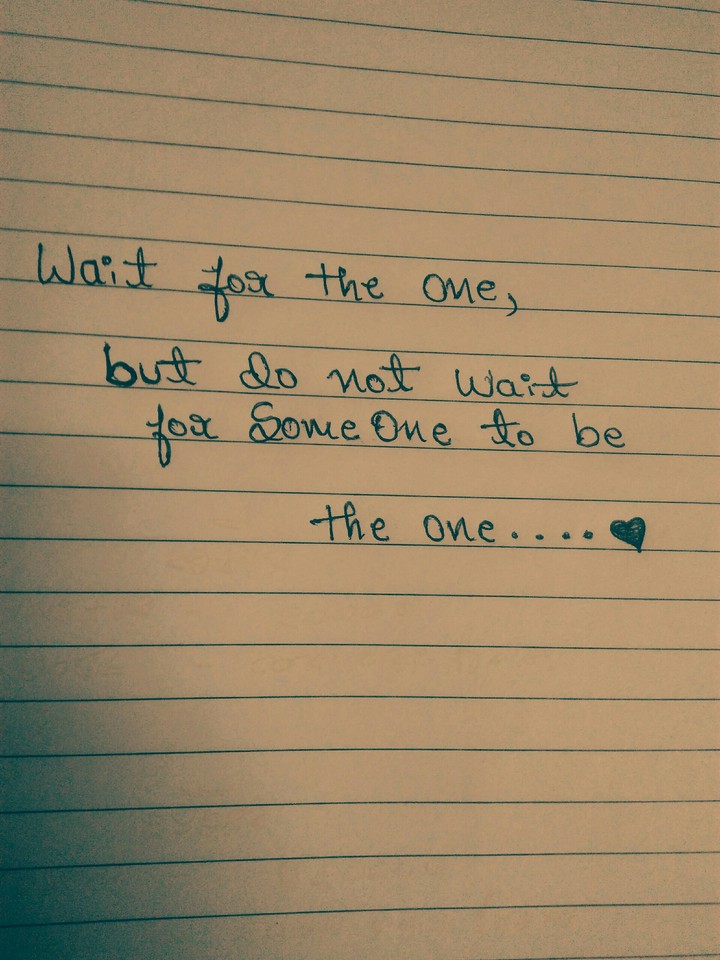 Wait for the one,
but do not wait
for SomeOne to be
the one....♥